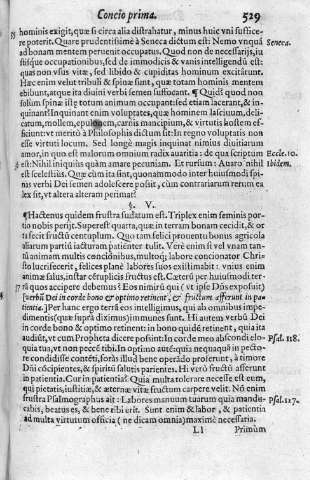 Concio prima. 529
hominis exigit, quæ si circa alia distrahatur, minus huic vni suffice-
re poterit. Quare prudentissimè à Seneca dictum est: Nemo vnquā Seneca.
ad bonam mentem peruenit occupatus. Quod non de necessarijs, iu
stisque occupationibus, sed de immodicis & vanis intelligendū est:
quas non vsus vitæ, sed libido & cupiditas hominum excitârunt.
Hæc enim velut tribuli & spinæ sunt, quæ totam hominis mentem
ebibunt, atque ita diuini verbi semen suffocant. ¶ Quid? quod non
solùm spinæ istę totum animum occupant: sed etiam lacerant, & in-
quinant? Inquinant enim voluptates, quæ hominem lasciuum, deli-
catum, mollem, epulonem, carnis mancipium, & virtutis hostem ef-
ficiunt: vt meritò à Philosophis dictum sit: In regno voluptatis non
esse virtuti locum. Sed longè magis inquinat nimius diuitiarum
amor, in quo est malorum omnium radix auaritia: de qua scriptum Eccle. 10.
est: Nihil iniquius quàm amare pecuniam. Et rursum: Auaro nihil Ibidem.
est scelestius. Quæ cùm ita sint, quonam modo inter huiusmodi spi-
nis verbi Dei semen adolescere possit, cùm contrariarum rerum ea
lex sit, vt altera alteram perimat?
§. V.
¶ Hactenus quidem frustra sudatum est. Triplex enim seminis por-
tio nobis perijt. Superest quarta, quæ in terram bonam cecidit, & or
ta fecit fructū centuplum. Quo tam felici prouentu bonus agricola
aliarum partiū iacturam patienter tulit. Verè enim si vel vnam tan-
tū animam multis concionibus, multoq; labore concionator Chri-
sto lucrifecerit, felices planè labores suos existimabit: vnius enim
animæ salus, instar cētuplicis fructus est. Cæterùm per huiusmodi ter
rā quos accipere debemus? Eos nimirū qui (vt ipse Dñs exposuit)
[verbū Dei in corde bono & optimo retinent, & fructum afferunt in pa-
tientia.] Per hanc ergo terrā eos intelligimus, qui ab omnibus impe-
dimentis (quæ supra diximus) immunes sunt. Hi autem verbū Dei
in corde bono & optimo retinent: in bono quidē retinent, quia ita
audiūt, vt cum Propheta dicere possint: In corde meo abscondi elo- Psal. 118.
quia tua, vt non peccē tibi. In optimo autē: quia nequaquā in pecto-
re condidisse contēti, foràs illud bene operādo proferunt, à timore
Dñi cōcipientes, & spiritū salutis parientes. Hi verò fructū afferunt
in patientia. Cur in patientia? Quia multa tolerare necesse est eum,
qui pietatis, iustitiæ, & æternæ vitæ fructum carpere velit. Nō enim
frustra Psalmographus ait: Labores manuum tuarum quia mandu- Psal. 127.
cabis, beatus es, & bene tibi erit. Sunt enim & labor, & patientia
ad multa virtutum officia (ne dicam omnia) maximè necessaria.
L l Primùm